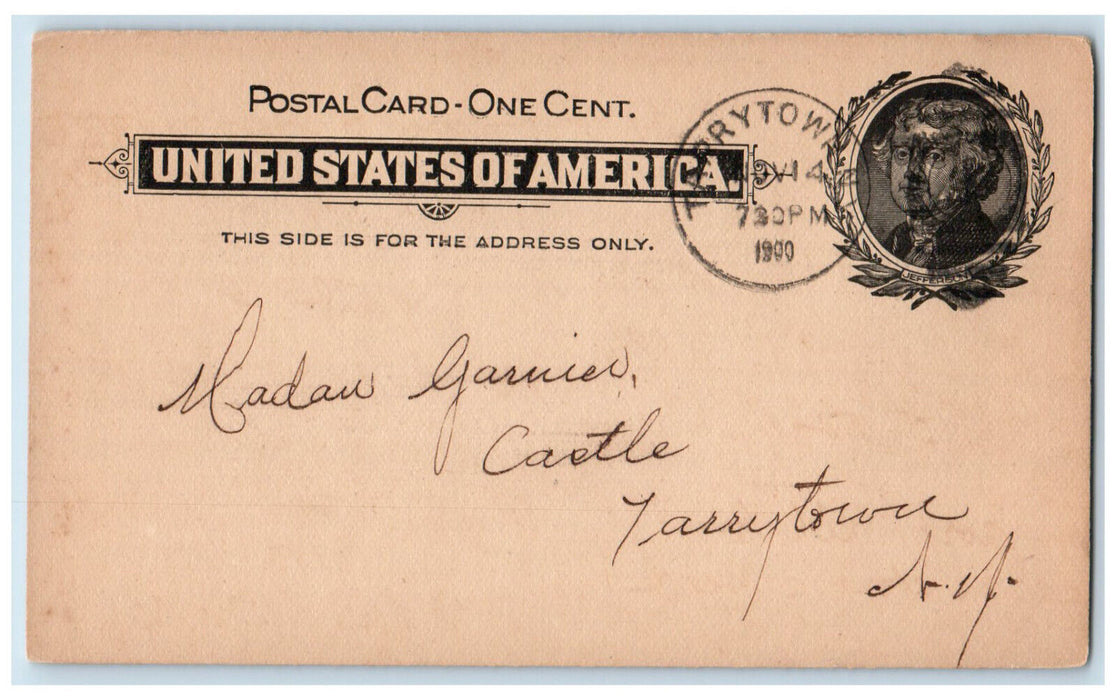 POSTAL CARD - ONE CENT.
UNITED STATES OF AMERICA.
THIS SIDE IS FOR THE ADDRESS ONLY.
TARRYTOWN
NOV 14
730PM
1900
JEFFERSON
Madam Garnier,
Castle
Tarrytown
N.Y.